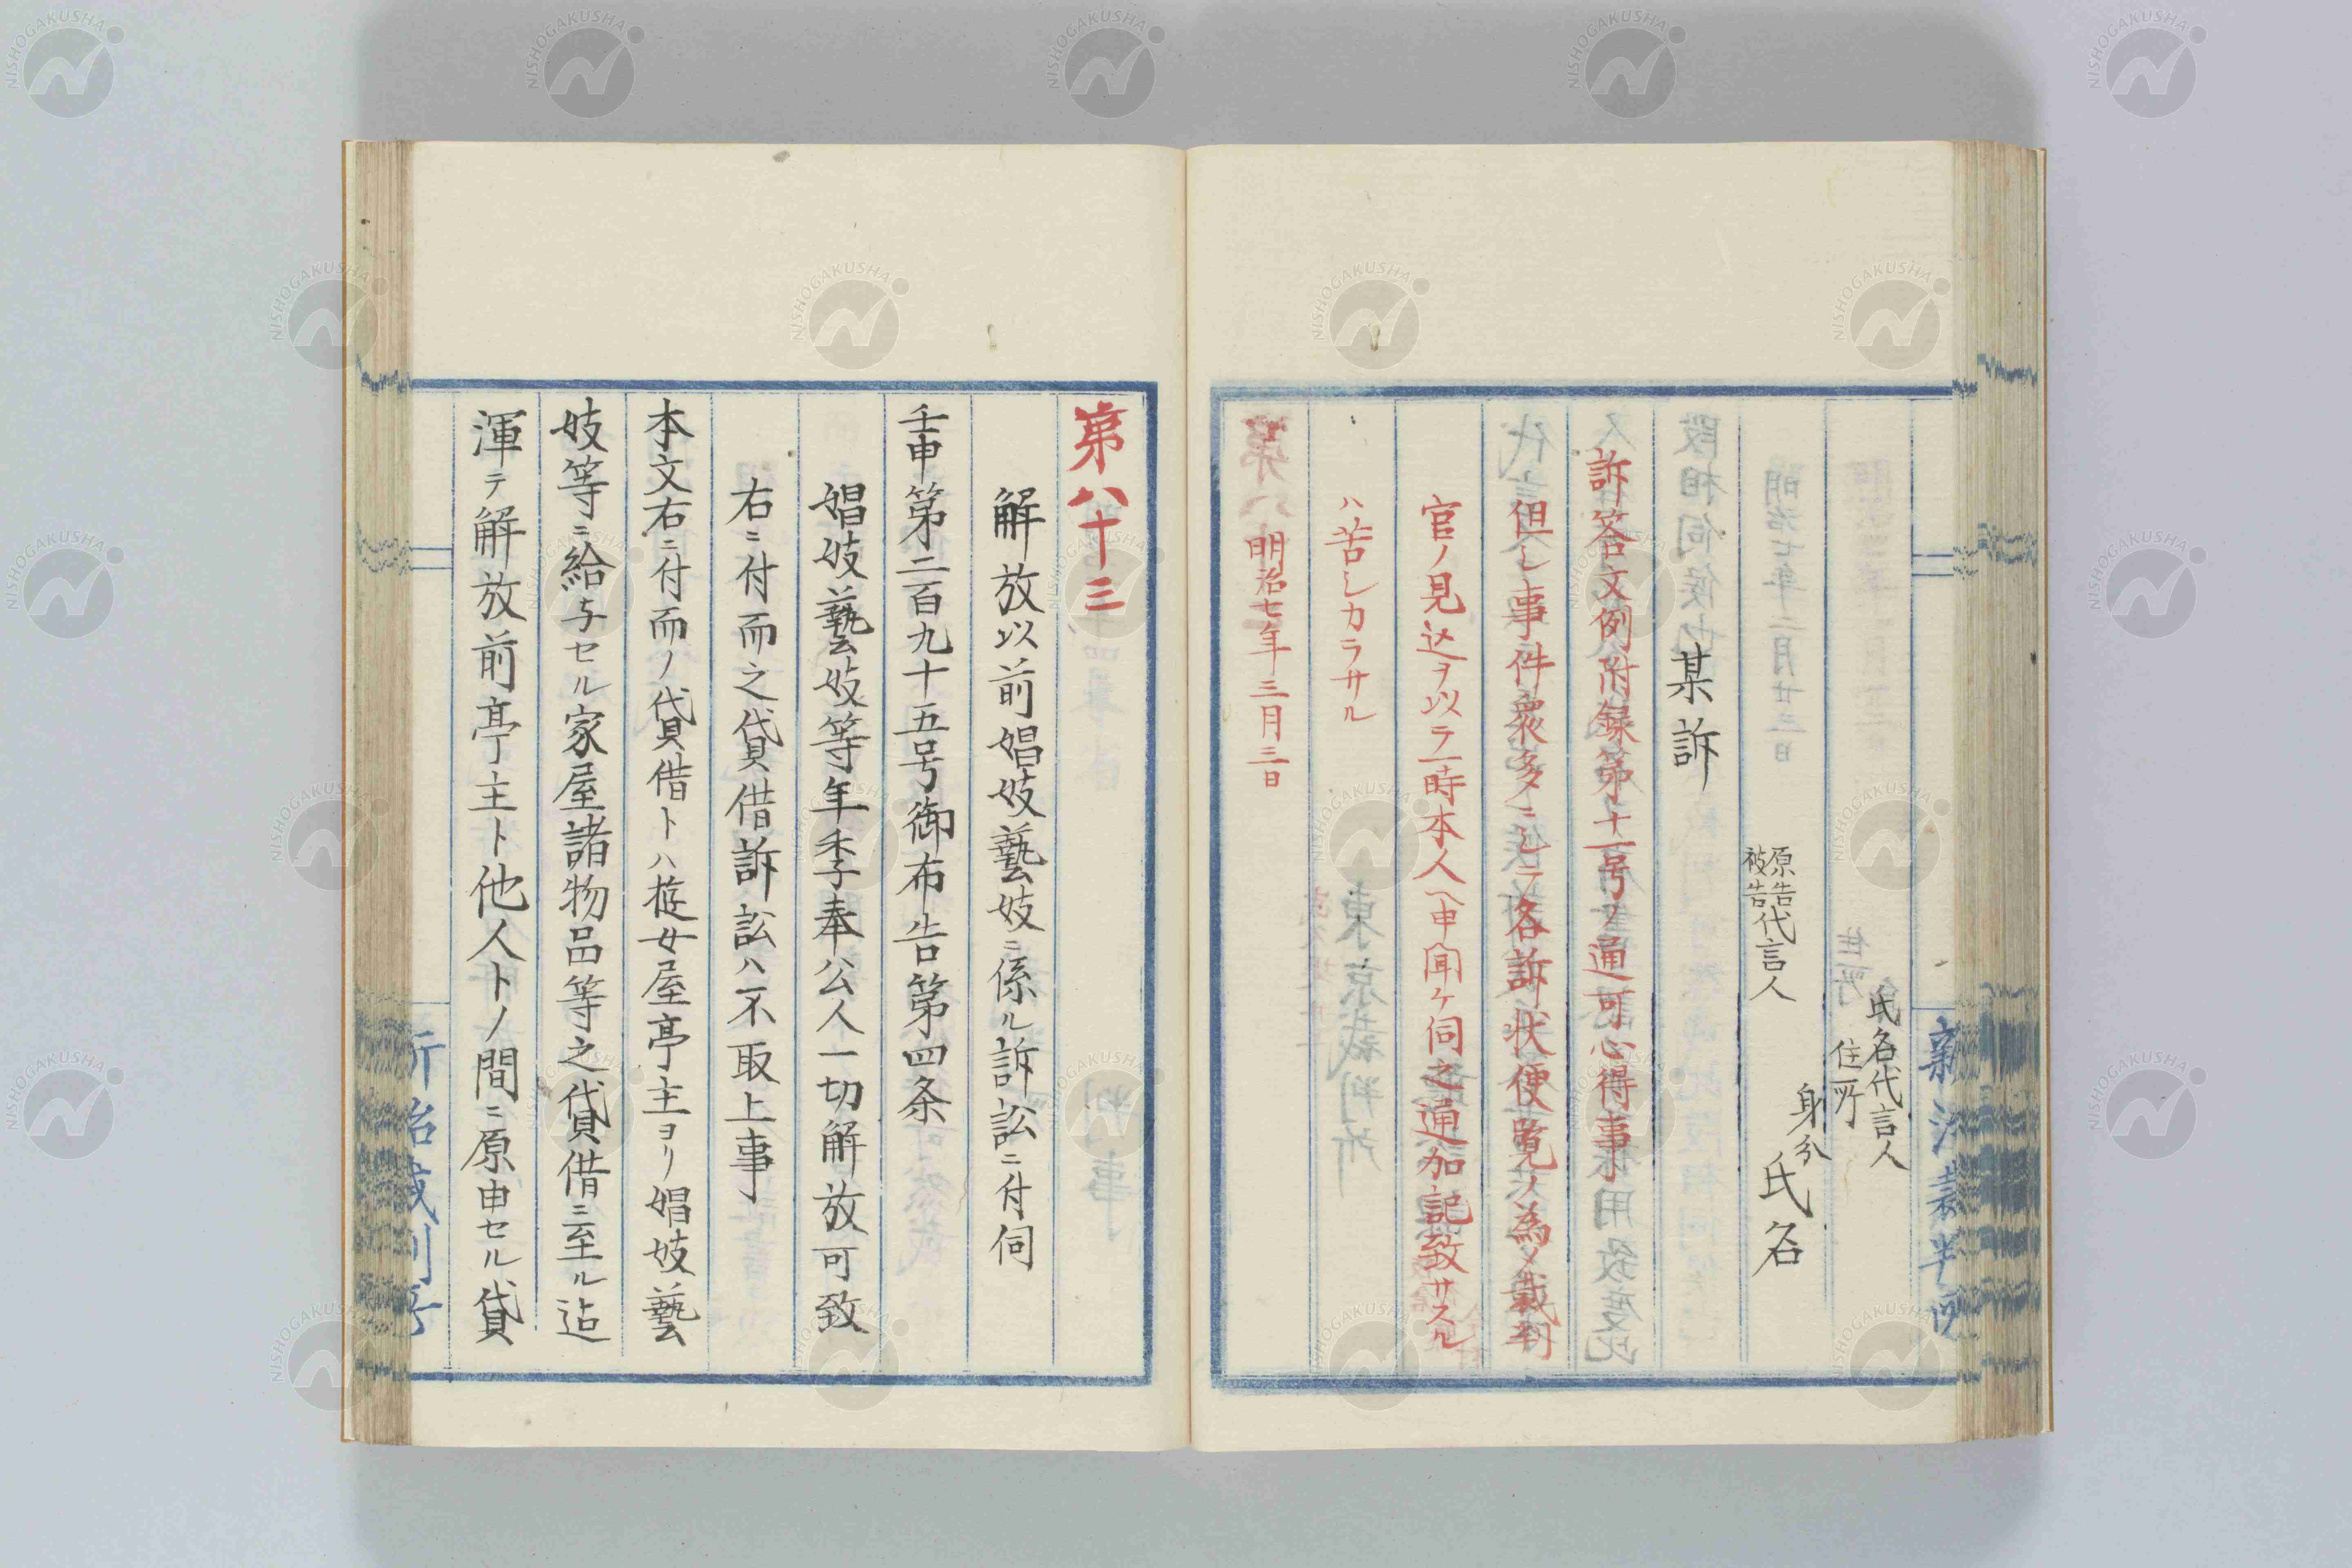 氏名代言人
住所
身分
原告
被告
代言人
氏名
某訴
訴答文例附録第十一号ノ通可心得事
但シ事件衆多ニシテ各訴状便覧ノ為メ裁判
官ノ見込ヲ以テ一時本人ヘ申聞ケ伺之通加記致サスル
ハ苦シカラサル
明治七年三月三日
第八十三
解放以前娼妓藝妓ニ係ル訴訟ニ付伺
壬申第二百九十五号御布告第四条
娼妓藝妓等年季奉公人一切解放可致
右ニ付而之貸借訴訟ハ不取上事
本文右ニ付而ノ貸借トハ遊女屋亭主ヨリ娼妓藝
妓等ニ給与セル家屋諸物品等之貸借ニ至ル迠
渾テ解放前亭主ト他人トノ間ニ原由セル貸
NISHOGAKUSHA